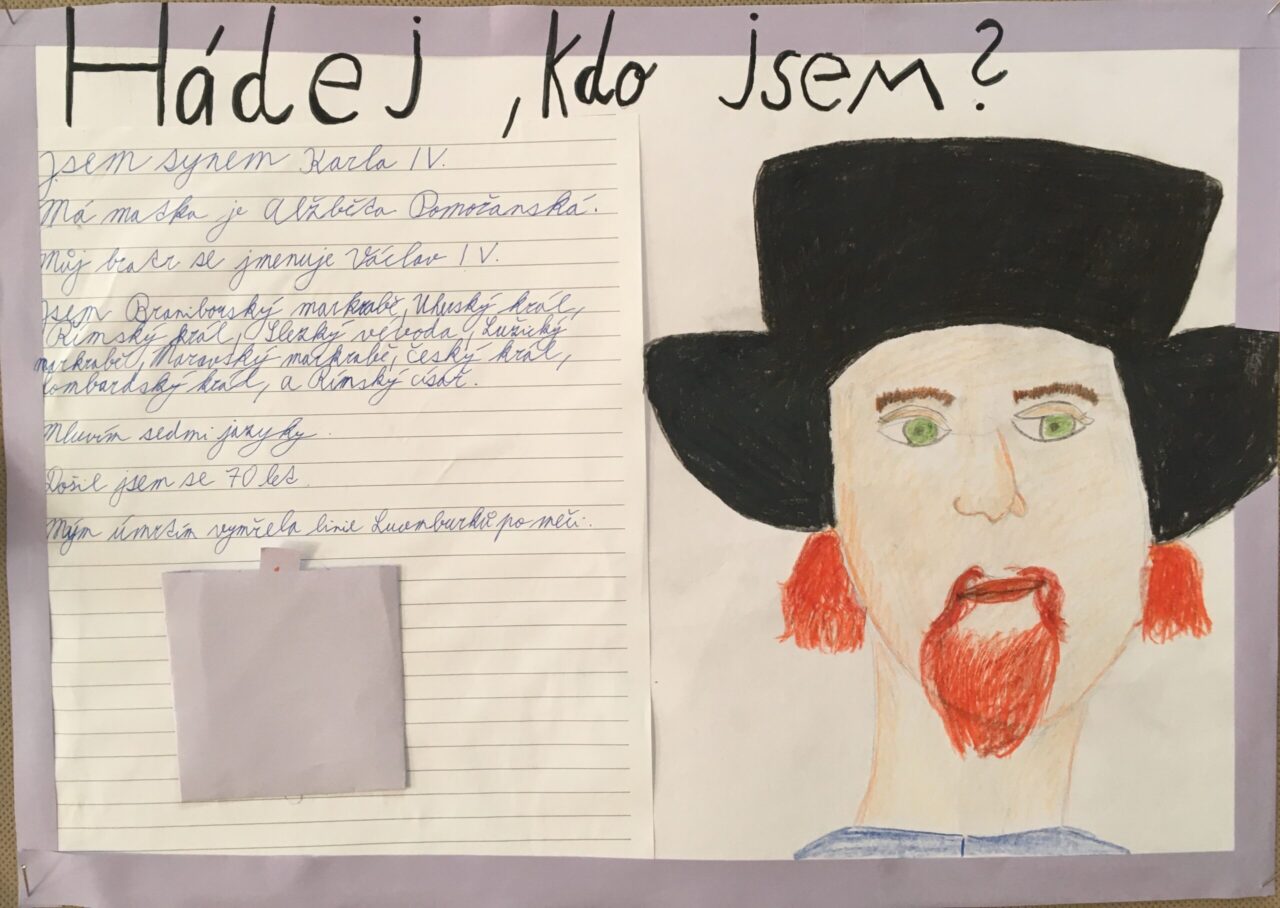 Hádej, kdo jsem?
Jsem synem Karla IV.
Má matka je Alžběta Pomořanská.
Můj bratr se jmenuje Václav IV.
Jsem Braniborský markrabě, Uherský král,
Římský král, Slezký vévoda, Lužický
markrabě, Moravský markrabě, český král,
Lombardský král, a Římský císař.
Mluvím sedmi jazyky.
Dožil jsem se 70 let.
Mým úmrtím vymřela linie Lucemburků po meči.